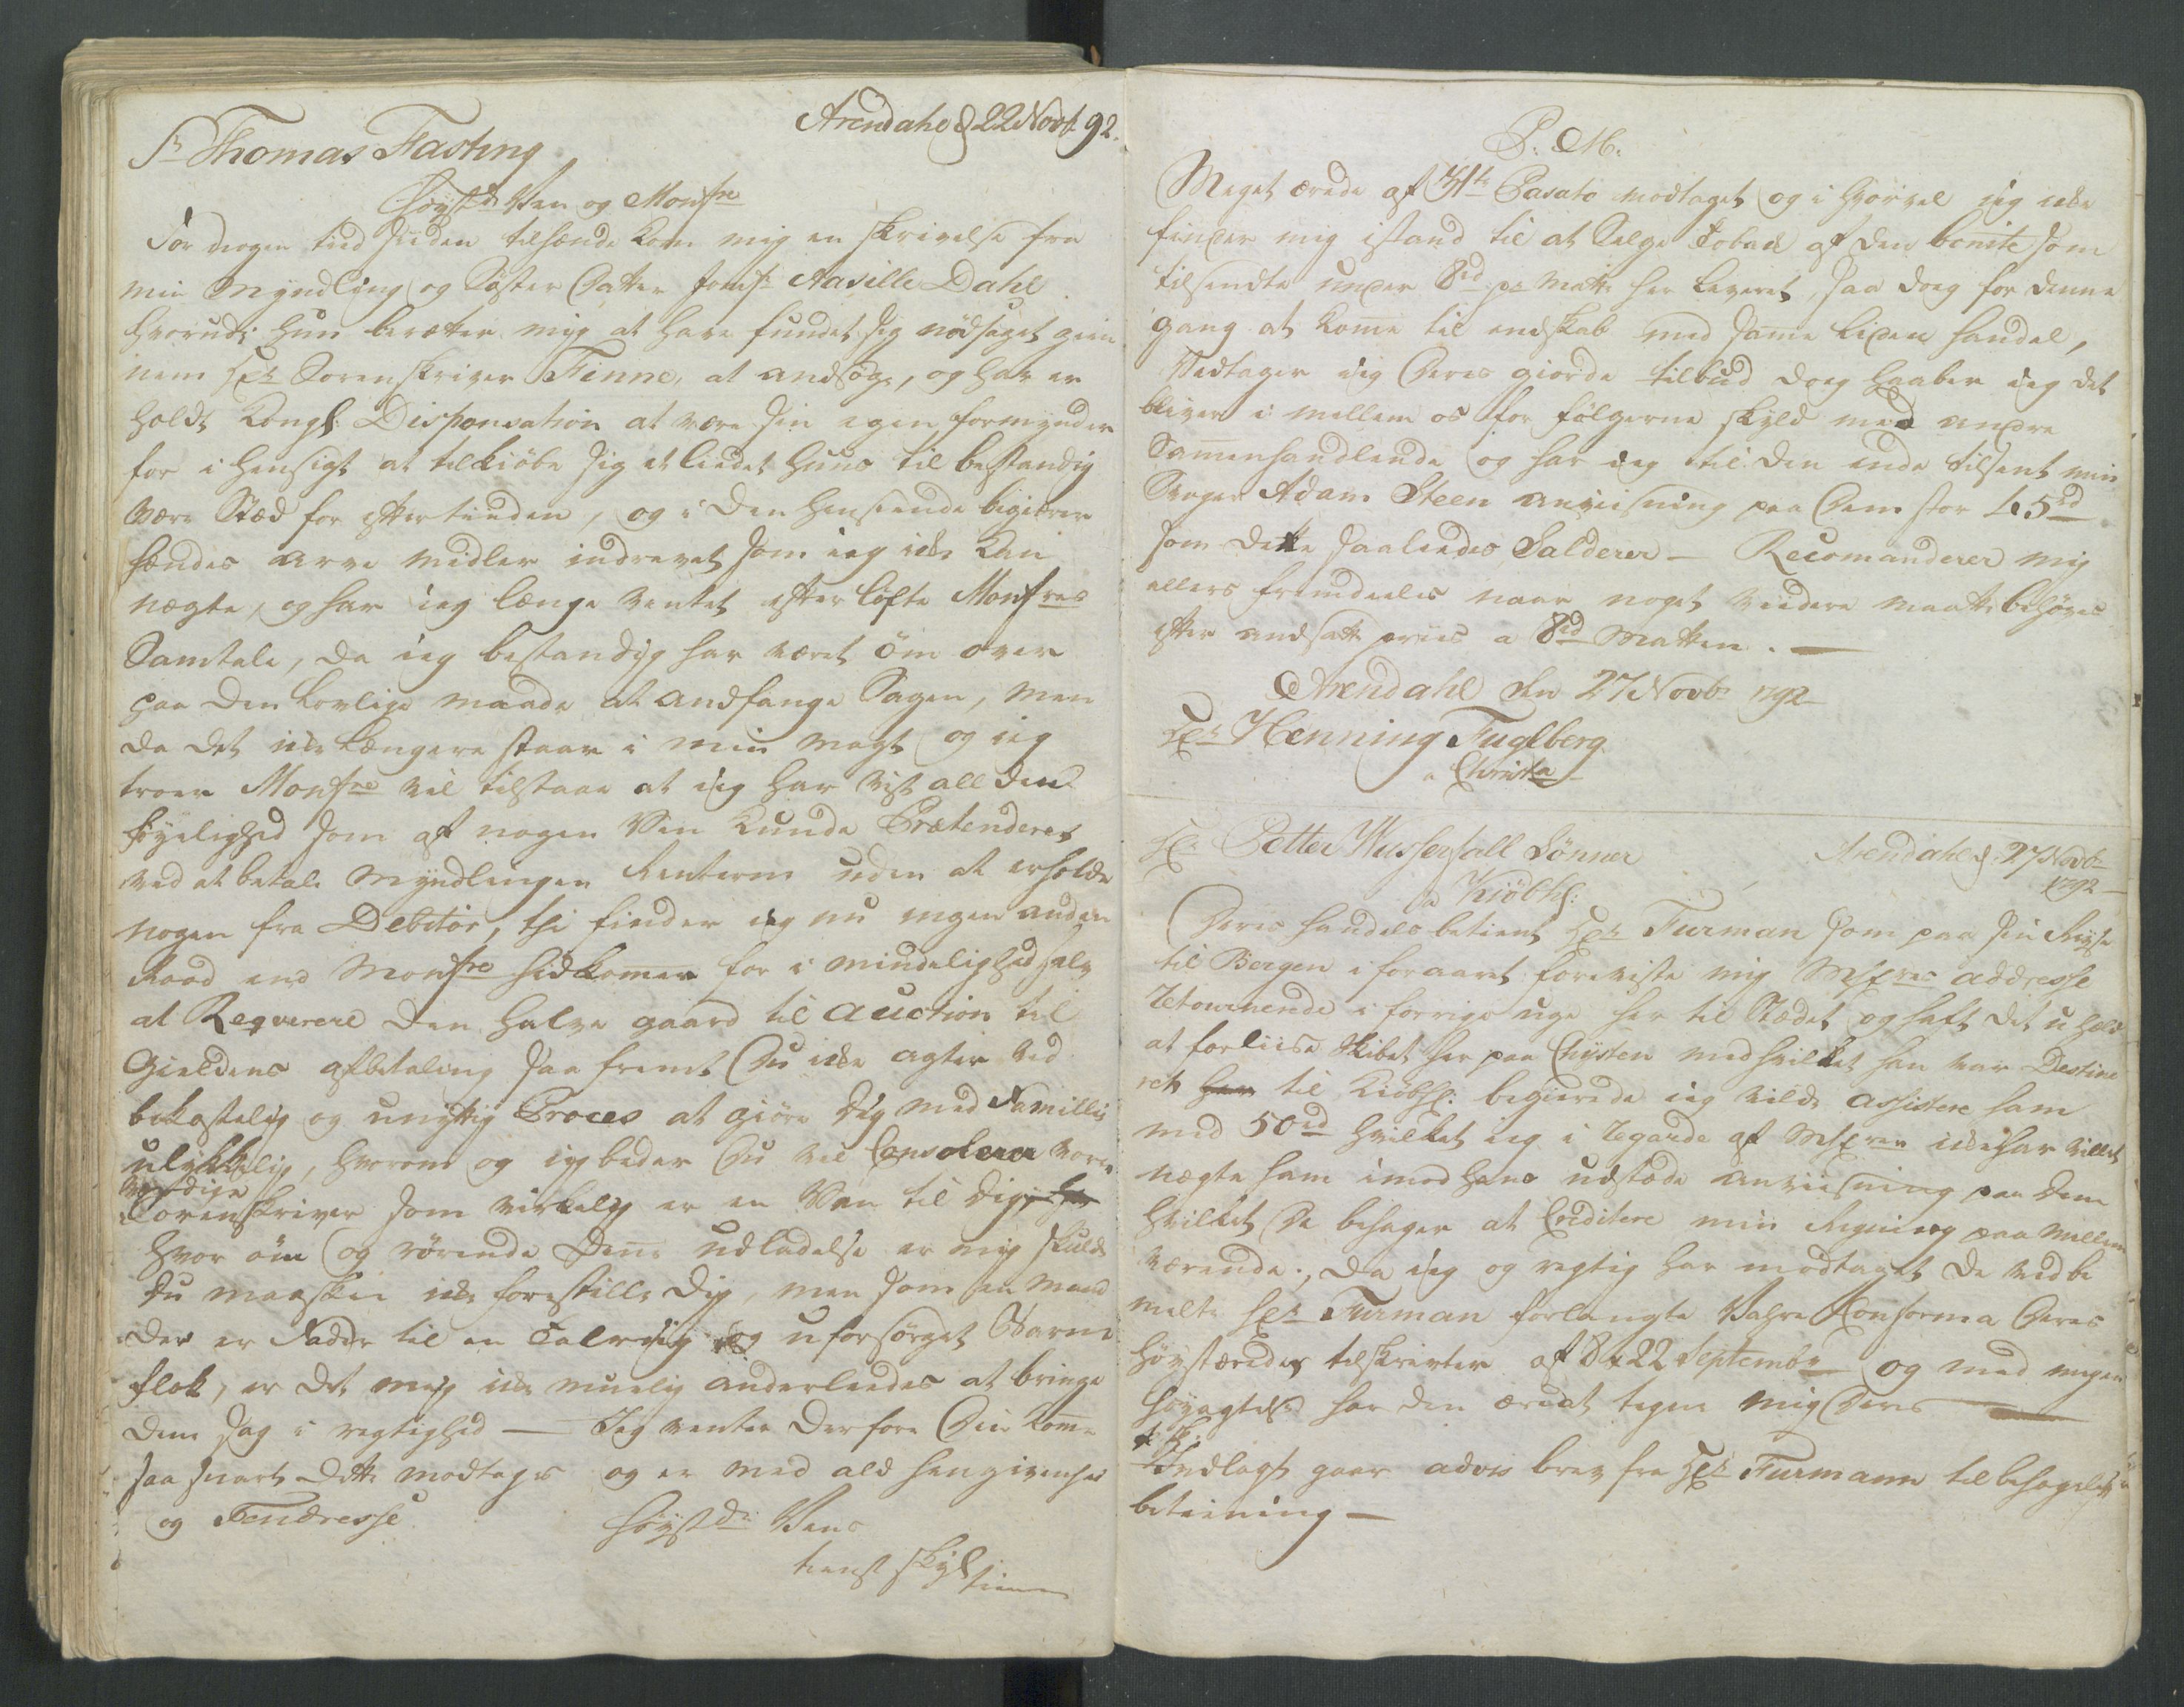 Arendahl d 22 Novb. 92.
Sr. Thomas Fasting
Høyst. Ven og Monfre
For nogen tiid siiden tilhænde kom mig en skrivelse fra
min Myndling og Søster Datter Jomfr. Aasille Dahl
hvorudi hun beretter mig at have fundet sig nødsaget gien-
nem Hr. Sorenskriver Finne, at andsøge, og har er-
holdt Kongl: Dispensation at være sin egen formynder
for i hensigt at tilkiøbe sig et lidet Huus til bestandig
være Stæd for eftertiiden, og i den henseende begierer
hendes arve midler indrevet som ieg icke kan
nægte, og har ieg længe ventet efter løfte Monfres
Samtale, da ieg bestandig har været øm over
paa den lovlige maade at andfange Sagen, men
da det icke længere staar i min magt og ieg
troer Monfre vil tilstaae at ieg har vist all den
føyelighed som af nogen Ven kunde Prætenderes
ved at betale Myndlingen Renterne uden at erholde
nogen fra Debitor, thi finder ieg nu ingen anden
Raad end Monfre hidkommer for i mindelighed selv
at Reqverere den halve gaard til Auction til
Gieldens afbetaling saa fremt Du icke agter ved
bekostelig og unyttig Proces at giøre dig med Familie
ulykkelig, hvorom og ieg beder Du vil Consolerer vores
værdige
Sorenskriver som virkelig er en Ven til dig,
hvor øm og rørende Denne udladelse er mig skulde
du maaskee icke forestille dig, men som en Mand
der er Fader til en talriig og uforsørget Barne
flok, er det mig icke muelig anderleedes at bringe
denne sag i rigtighed — Jeg venter derfore Din komme
saa snart dette modtages og er med all hengivenhed
og Tendresse Høyst d. Vens
tienst skyldige tiener

P. M.
Meget ærede af 31te Pasato modtaget og i hvorvel ieg icke
finder mig istand til at Selge Toback af den bonite som
tilsendte under 8rd pr. Matte her leveret, saa dog for denne
gang at komme til endskab med samme liden handel,
Vedtager ieg Deres giorde tilbud dog haaber ieg det
bliver i mellem os for følgerne skyld med andre
Sammenhandlende og har ieg til den ende tilsent min
Svoger Adam Steen anviisning paa Dem stor 45rd
som dette saaleedes Salderer — Recomanderer mig
ellers fremdeeles naar noget viidere maatte behøves
efter andsatte priis a 8rd Matten. —
Arendahl den 27 Novb. 1792
Hr. Henning Fuglberg
a Christa

Hr. Petter Wasserfall Sønner Arendahl d. 27 Novb.
1792 —
a Kiøbh:
Deres handels betient Hr. Furman som paa sin Reyse
til Bergen i foraaret foreviste mig Msrs addresse
Retournerede i forrige uge her til Stædet og haft det uheld
at forliise Skibet her paa Kysten med hvilket han var Destine-
ret til Kiøbh: begierede ieg vilde assistere ham
med 50rd hvilket ieg i Regarde af Msrs icke har villet
nægte ham imod hans udstæde anviisning paa Dem
hvilket De behager at Creditere min Regning paa mellem
værende., da ieg og rigtig har modtaget de ved be-
melte Hr. Furman forlangte Vahre Conforma Deres
høystærede tilskrivter af 8 & 22 Septembr. og med megen
høyagtelse har den æret tegne mig Deres —
Indlagt gaar advis brev fra Hr. Furmann til behagelig
betiening —